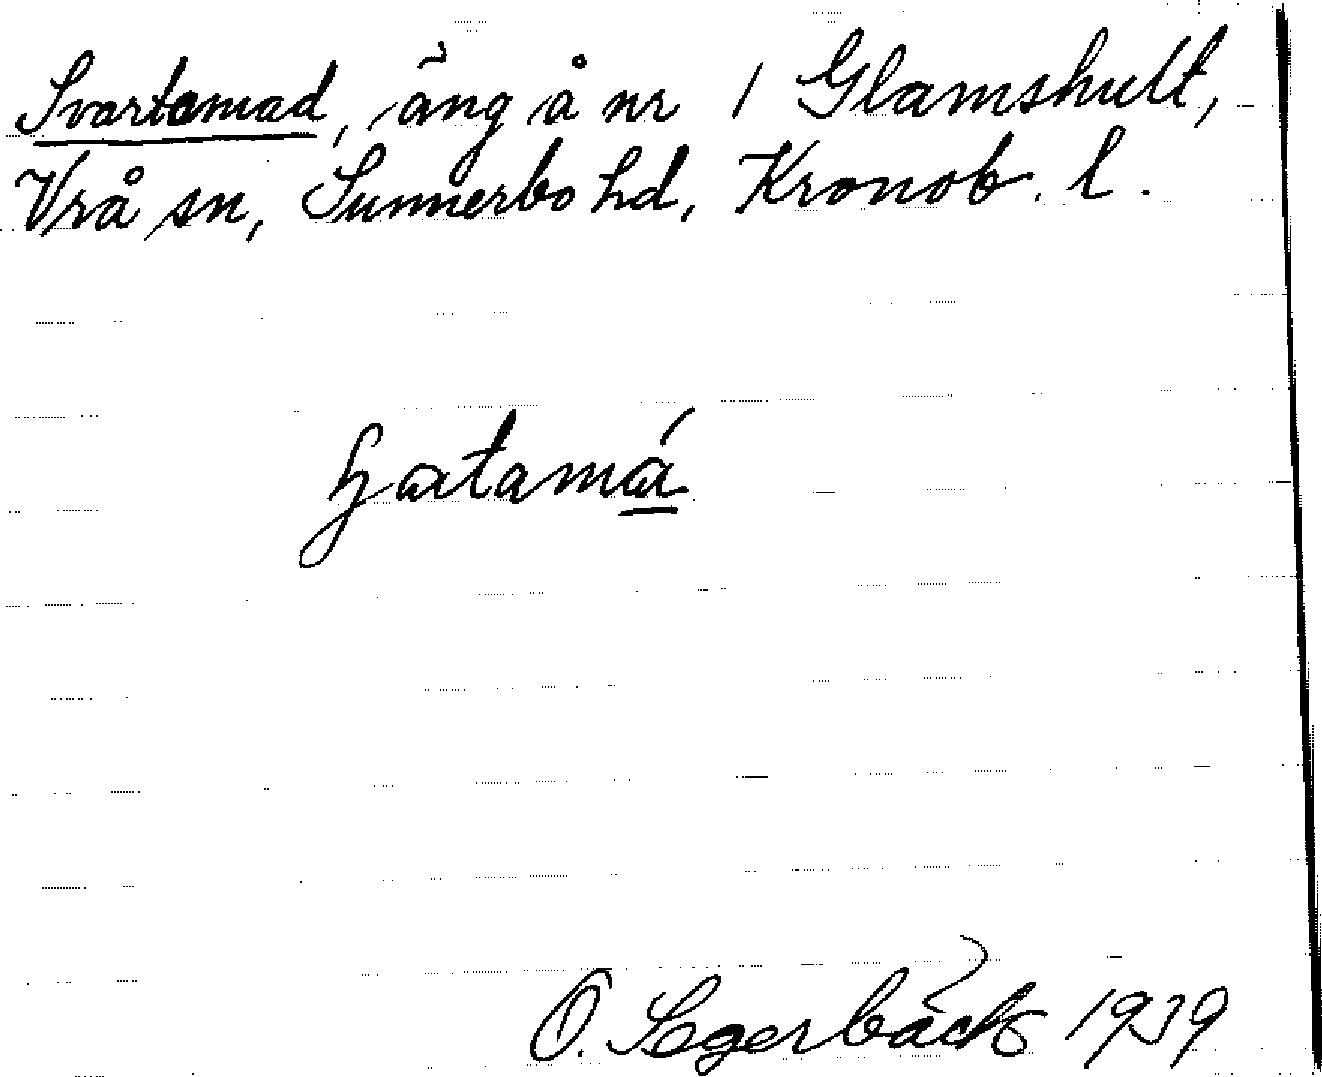 Svartamad, äng å nr 1 Glamshult,
Vrå sn, Sunnerbo hd, Kronob. l.
O. Segerbäck 1939